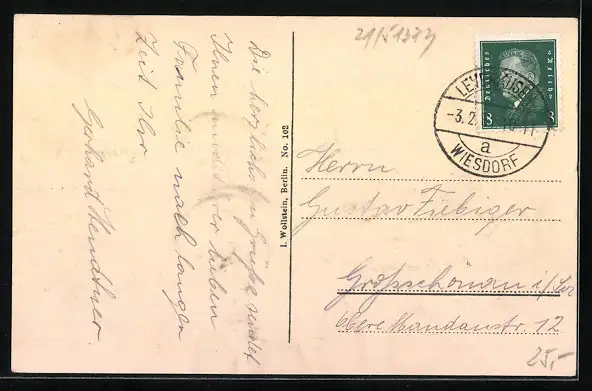 Die herzlichsten Grüße sendet
Ihnen und Ihrer lieben
Familie nach langer
Zeit Ihr
Gerhard
I. Wollstein, Berlin. No. 102
Deutsches Reich
8 8
LEVERKUSEN
-3.2.
a
WIESDORF
Herrn
Gustav Fiebiger
Großschönau i/Sa
Obere Mandaustr. 12
25,-